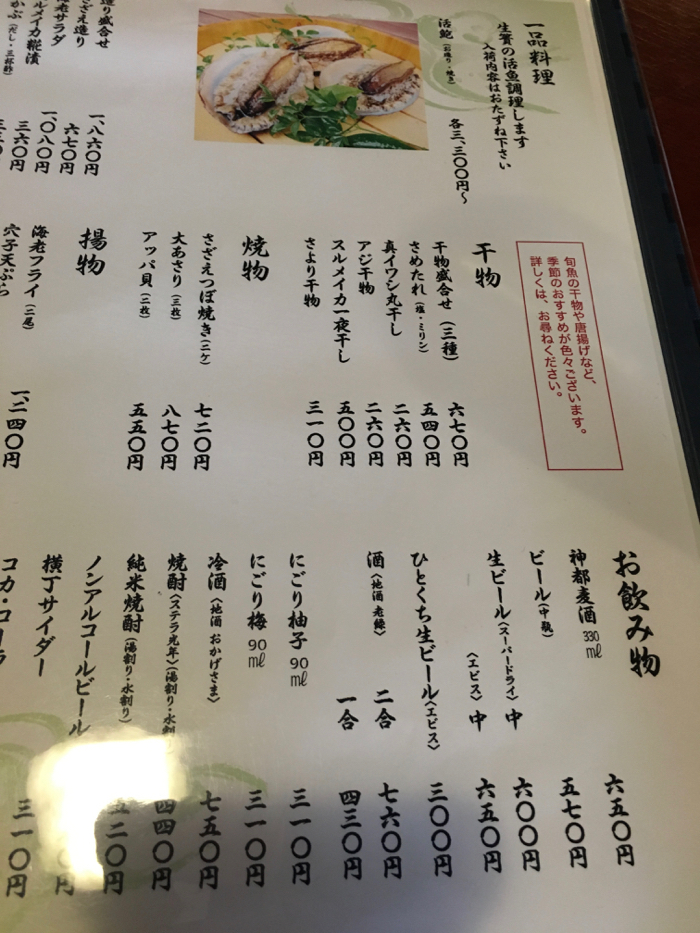 一品料理
生簀の活魚調理します
入荷内容はおたずね下さい
活鮑(お造り・焼き) 各三、三〇〇円〜
造り盛合せ 一、八六〇円
さざえ造り 六七〇円
海老サラダ 一、〇八〇円
スルメイカ糀漬 三六〇円
(だし・三杯酢)
旬魚の干物や唐揚げなど、
季節のおすすめが色々ございます。
詳しくは、お尋ねください。
干物
干物盛合せ(三種) 六七〇円
さめたれ(塩・ミリン) 五四〇円
真イワシ丸干し 二六〇円
アジ干物 二六〇円
スルメイカ一夜干し 五〇〇円
さより干物 三一〇円
焼物
さざえつぼ焼き(二ケ) 七二〇円
大あさり(三枚) 八七〇円
アッパ貝(二枚) 五五〇円
揚物
海老フライ(二尾)
穴子天ぷら 一、二四〇円
お飲み物
神都麦酒 330ml 六五〇円
ビール(中瓶) 五七〇円
生ビール〈スーパードライ〉中 六〇〇円
〈エビス〉中 六五〇円
ひとくち生ビール〈エビス〉 三〇〇円
酒(地酒 老緑) 二合 七六〇円
一合 四三〇円
にごり柚子 90ml 三一〇円
にごり梅 90ml 三一〇円
冷酒(地酒 おかげさま) 七五〇円
焼酎〈ステラ光年〉(湯割り・水割り) 四四〇円
純米焼酎(湯割り・水割り) 二〇円
ノンアルコールビール
横丁サイダー 三一〇円
コカ・コーラ